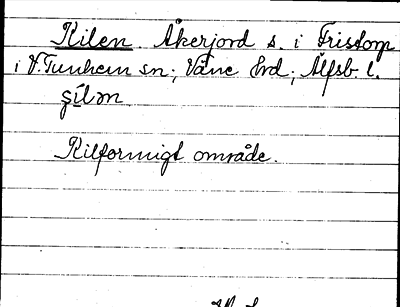 Kilen. Åkerjord s. i Fristorp
i V. Tunhem sn; Väne hd; Älfsb. l.
şílən
Kilformigt område.